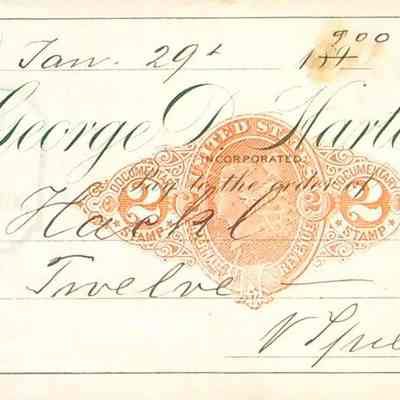 Jan. 29th 1900
George D. Harte
INCORPORATED.
UNITED STATES
DOCUMENTARY DOCUMENTARY
Pay to the order of
2 2 2 2
STAMP STAMP
INTERNAL REVENUE
Hachl
Twelve